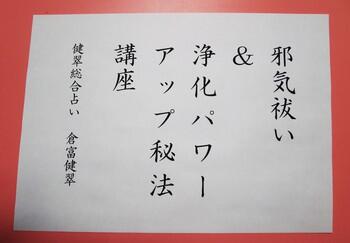 邪気祓い
&
浄化パワー
アップ秘法
講座
健翠総合占い 倉富健翠